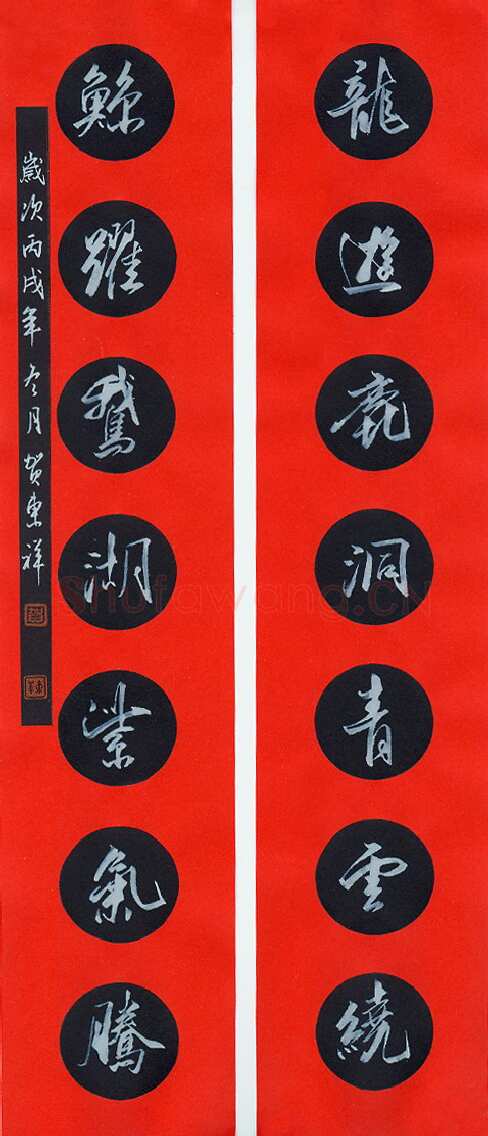 龍遊鹿洞青雲繞
鯨躍鵞湖紫氣騰
歲次丙戌年冬月賀東祥
Shufawang.CN